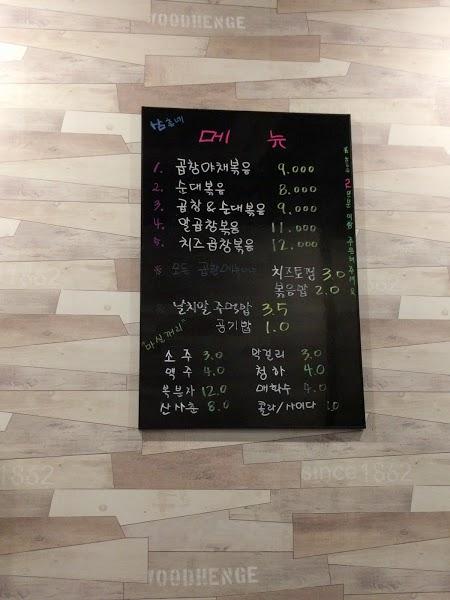 WOODHENGE
메 뉴
1. 곱창야채볶음 9.000
2. 순대볶음 8.000
3. 곱창&순대볶음 9.000
4. 알곱창볶음 11.000
5. 치즈곱창볶음 12.000
※ 모든 치즈토핑 3.0
볶음밥 2.0
날치알주먹밥 3.5
공기밥 1.0
"마실꺼리"
소주 3.0 막걸리 3.0
맥주 4.0 청하 4.0
복분자 12.0 매화수 4.0
산사춘 8.0 콜라/사이다
since1862
WOODHENGE